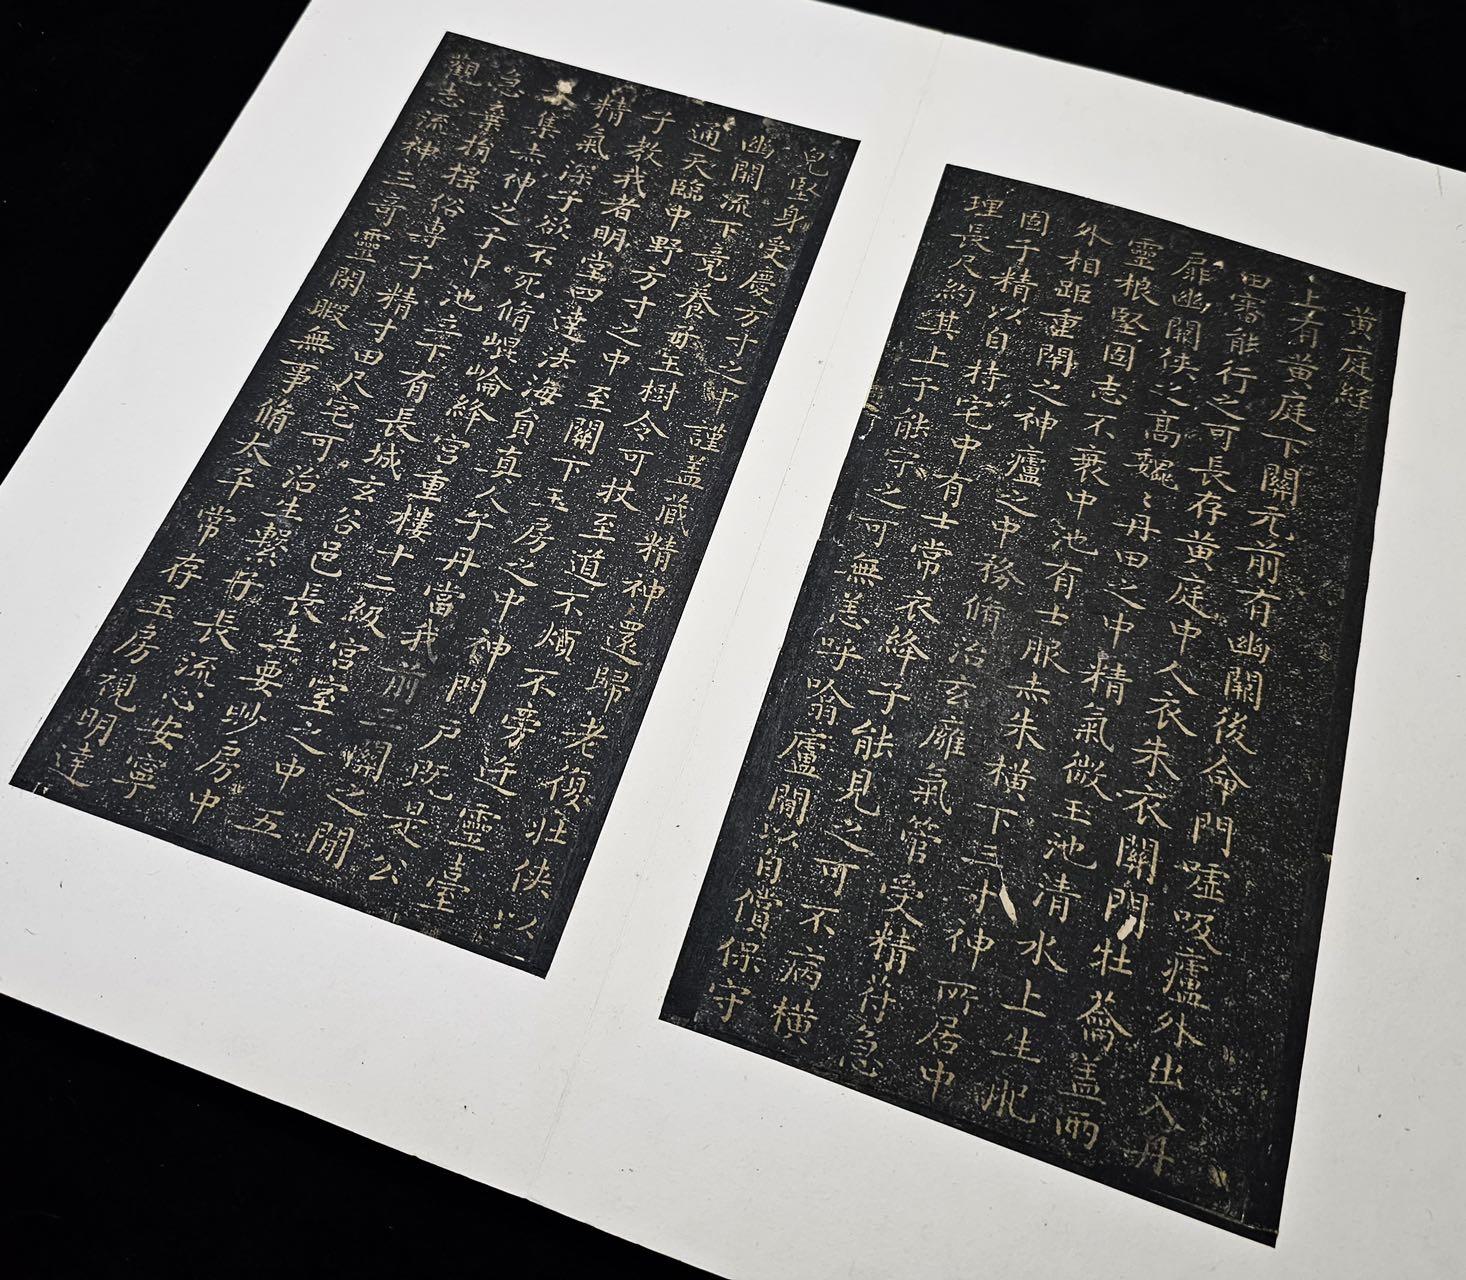 黃庭經
上有黃庭下關元前有幽闕後命門噓吸廬外出入丹
田審能行之可長存黃庭中人衣朱衣關門牡蘥蓋兩
扉幽關俠之高巍〻丹田之中精氣微玉池清水上生肥
靈根堅固志不衰中池有士服赤朱橫下三寸神所居中
外相距重閉之神廬之中務脩治玄廱氣管受精符急
固子精以自持宅中有士常衣絳子能見之可不病橫
理長尺約其上子能守之可無恙呼噏廬間以自償保守
皃堅身受慶方寸之中謹蓋藏精神還歸老復壯俠以
幽闕流下竟養子玉樹令可杖至道不煩不旁迕靈臺
通天臨中野方寸之中至關下玉房之中神門戶既是公
子教我者明堂四達法海員真人子丹當我前三關之間
精氣深子欲不死脩崐崘絳宮重樓十二級宮室之中五
集赤神之子中池立下有長城玄谷邑長生要眇房中
急棄捐搖俗專子精寸田尺宅可治生繫子長流心安寧
觀志流神三奇靈閑暇無事脩太平常存玉房視明達